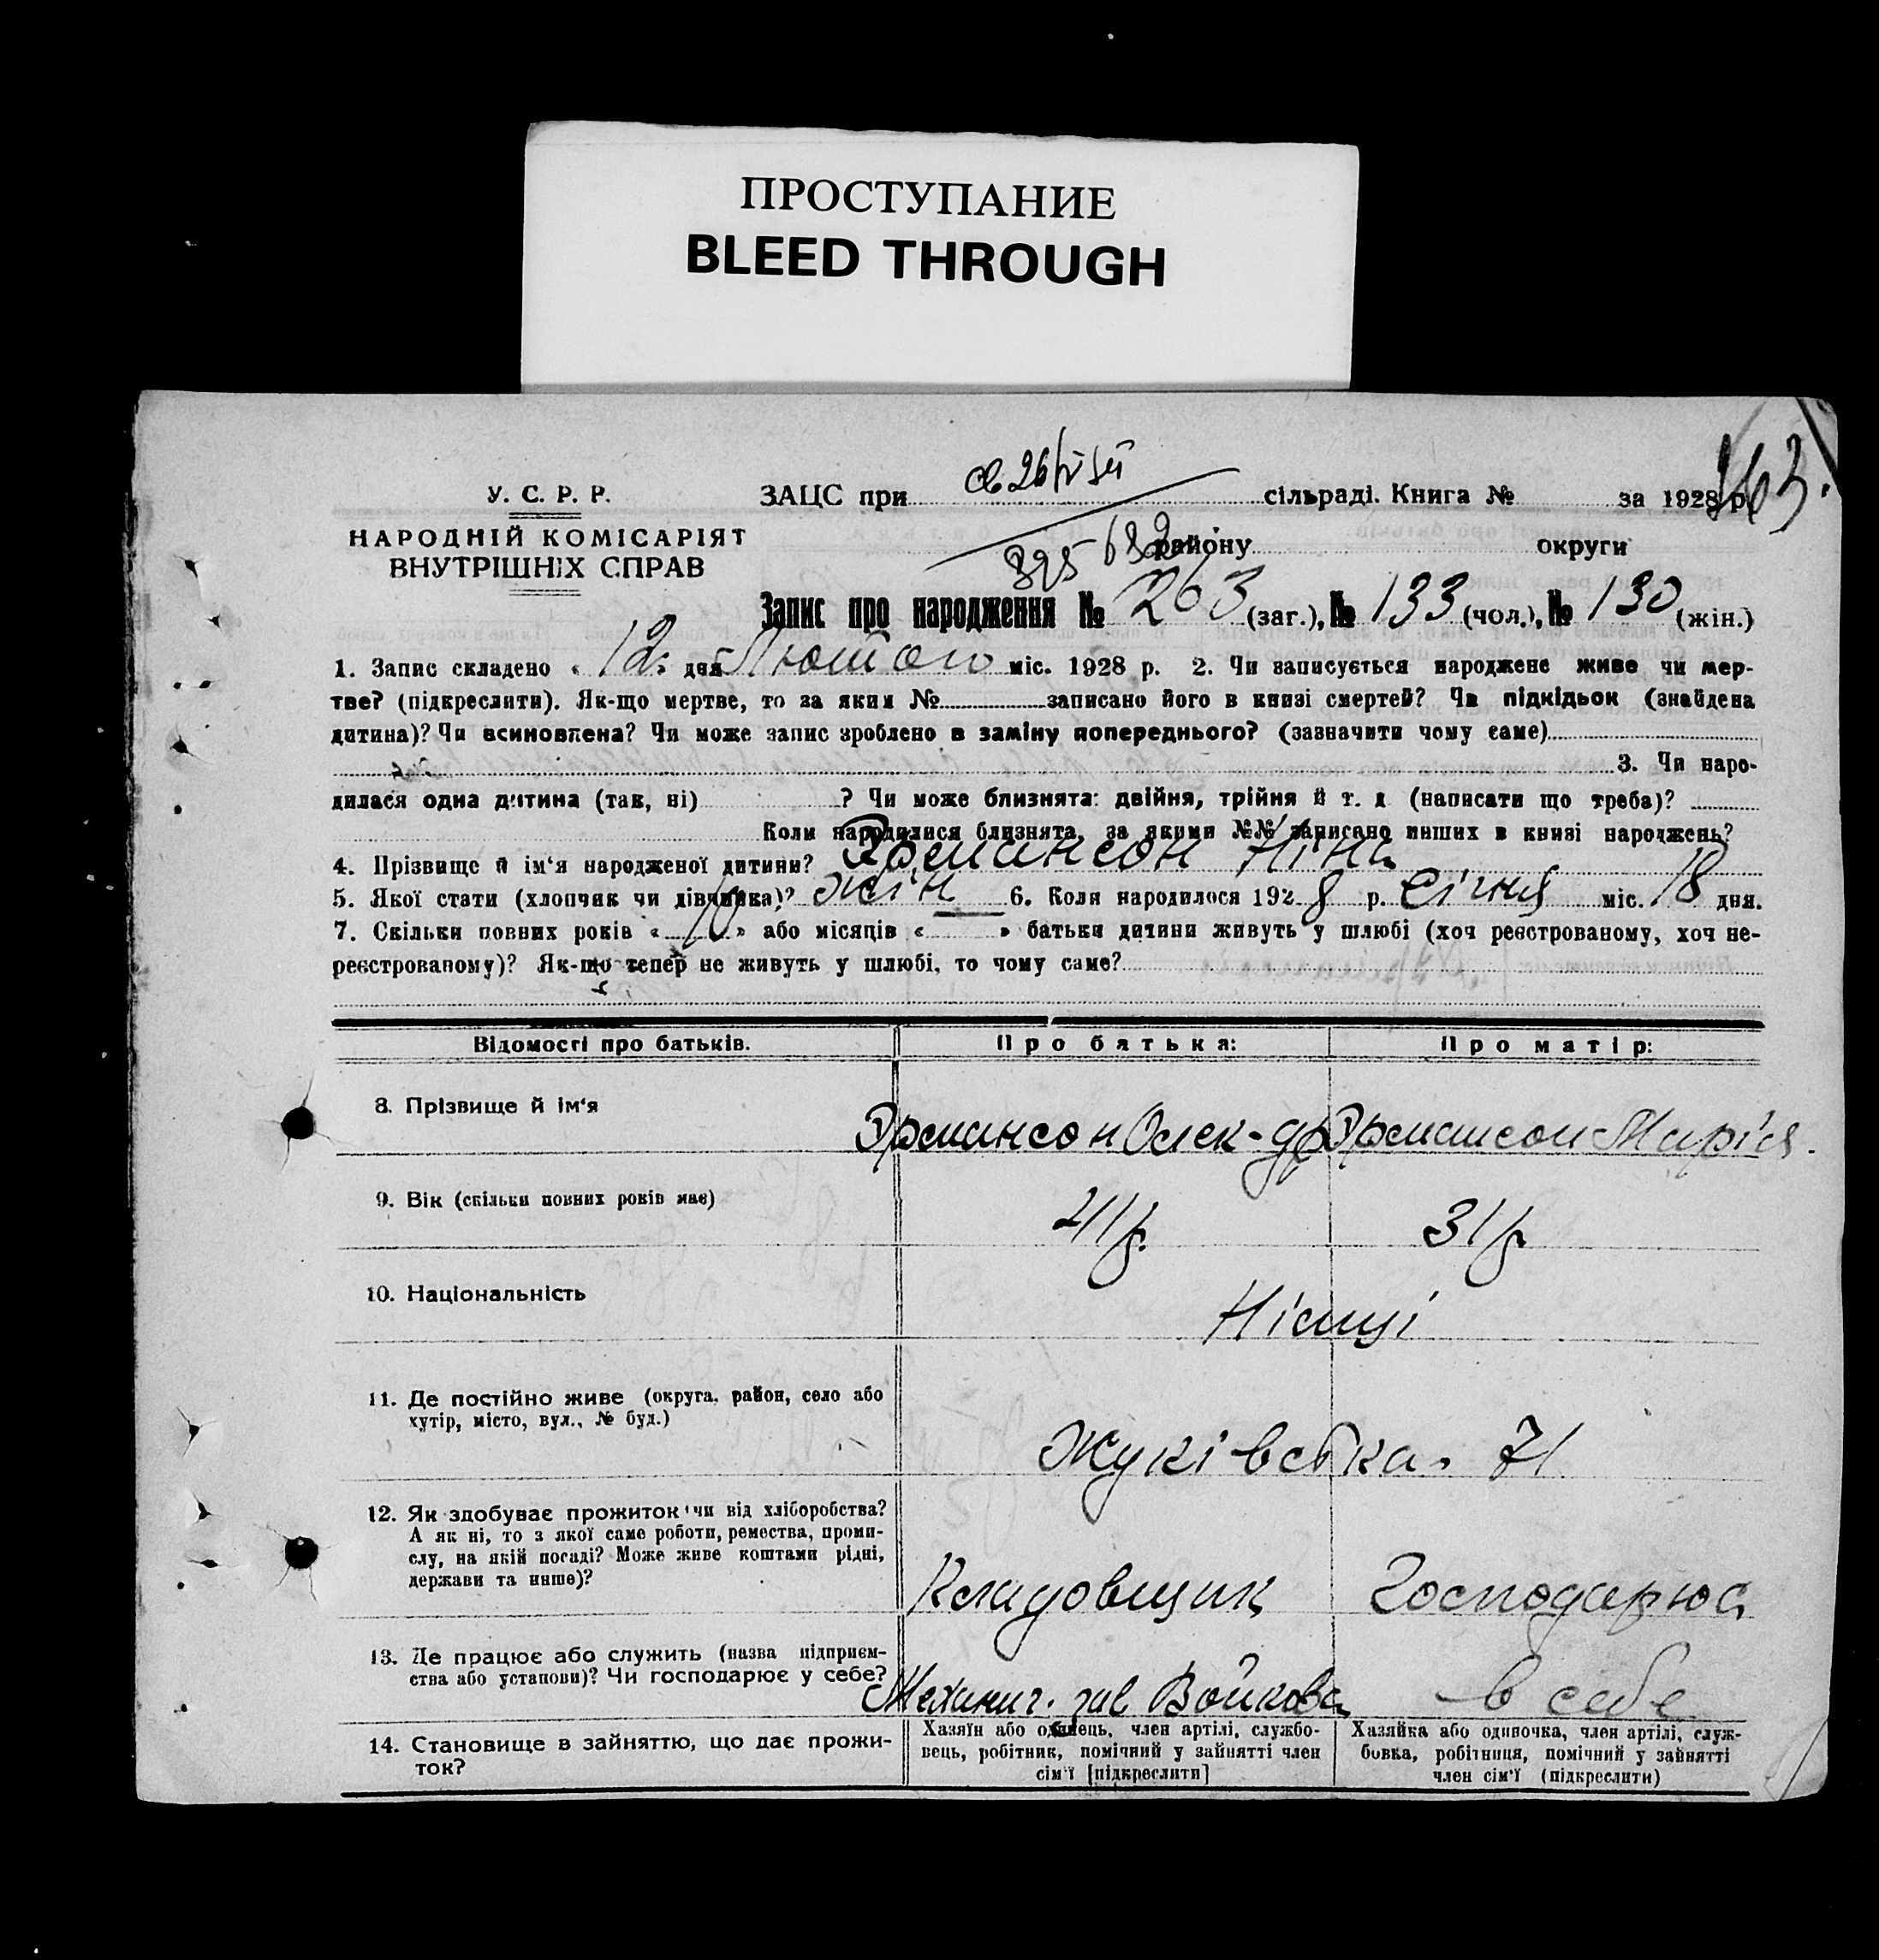 ПРОСТУПАНИЕ
BLEED THROUGH
163.
У. С. Р. Р.
НАРОДНІЙ КОМІСАРІЯТ
ВНУТРІШНІХ СПРАВ
ЗАЦС при сільраді. Книга № за 1928 р.
району округи
325 632
Запис про народження № 263 (заг.), № 133 (чол.), № 130 (жін.)
1. Запис складено « 12 » дня Лютого міс. 1928 р. 2. Чи записується народжене живе чи мер-
тве? (підкреслити). Як-що мертве, то за яким № записано його в книзі смертей? Чи підкідьок (знайдена
дитина)? Чи всиновлена? Чи може запис зроблено в заміну попереднього? (зазначити чому саме)
3. Чи наро-
дилася одна дитина (так, ні) ? Чи може близнята: двійня, трійня й т. д (написати що треба)?
Коли народилися близнята, за якими №№ записано инших в книзі народжень?
4. Прізвище й ім‘я народженої дитини? Эрмансон Ніна
5. Якої стати (хлопчик чи дівчинка)? жін 6. Коли народилося 1928 р. січня міс. 18 дня.
7. Скільки повних років « 10 » або місяців « » батьки дитини живуть у шлюбі (хоч реєстрованому, хоч не-
реєстрованому)? Як-що тепер не живуть у шлюбі, то чому саме?
Відомості про батьків. Про батька: Про матір:
8. Прізвище й ім‘я Эрмансон Олек-др Эрмансон Марія.
9. Вік (скільки повних років має) 41 р. 31 р
10. Національність Німці
11. Де постійно живе (округа, район, село або
хутір, місто, вул., № буд.)
Жуківська 71
12. Як здобуває прожиток чи від хліборобства?
А як ні, то з якої саме роботи, ремества, проми-
слу, на якій посаді? Може живе коштами рідні,
держави та инше)?
Кладовщик Господарюа
13. Де працює або служить (назва підприєм-
ства або установи)? Чи господарює у себе?
Механич. зав Войкова в себе
14. Становище в зайняттю, що дає прожи-
ток?
Хазяїн або одинець, член артілі, службо-
вець, робітник, помічний у зайнятті член
сім‘ї [підкреслити]
Хазяйка або одиночка, член артілі, служ-
бовка, робітниця, помічний у зайнятті
член сім‘ї (підкреслити)